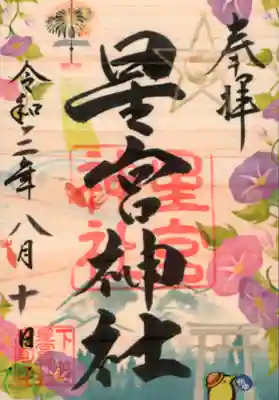 奉拝
星宮神社
星宮
神社
令和二年八月十日